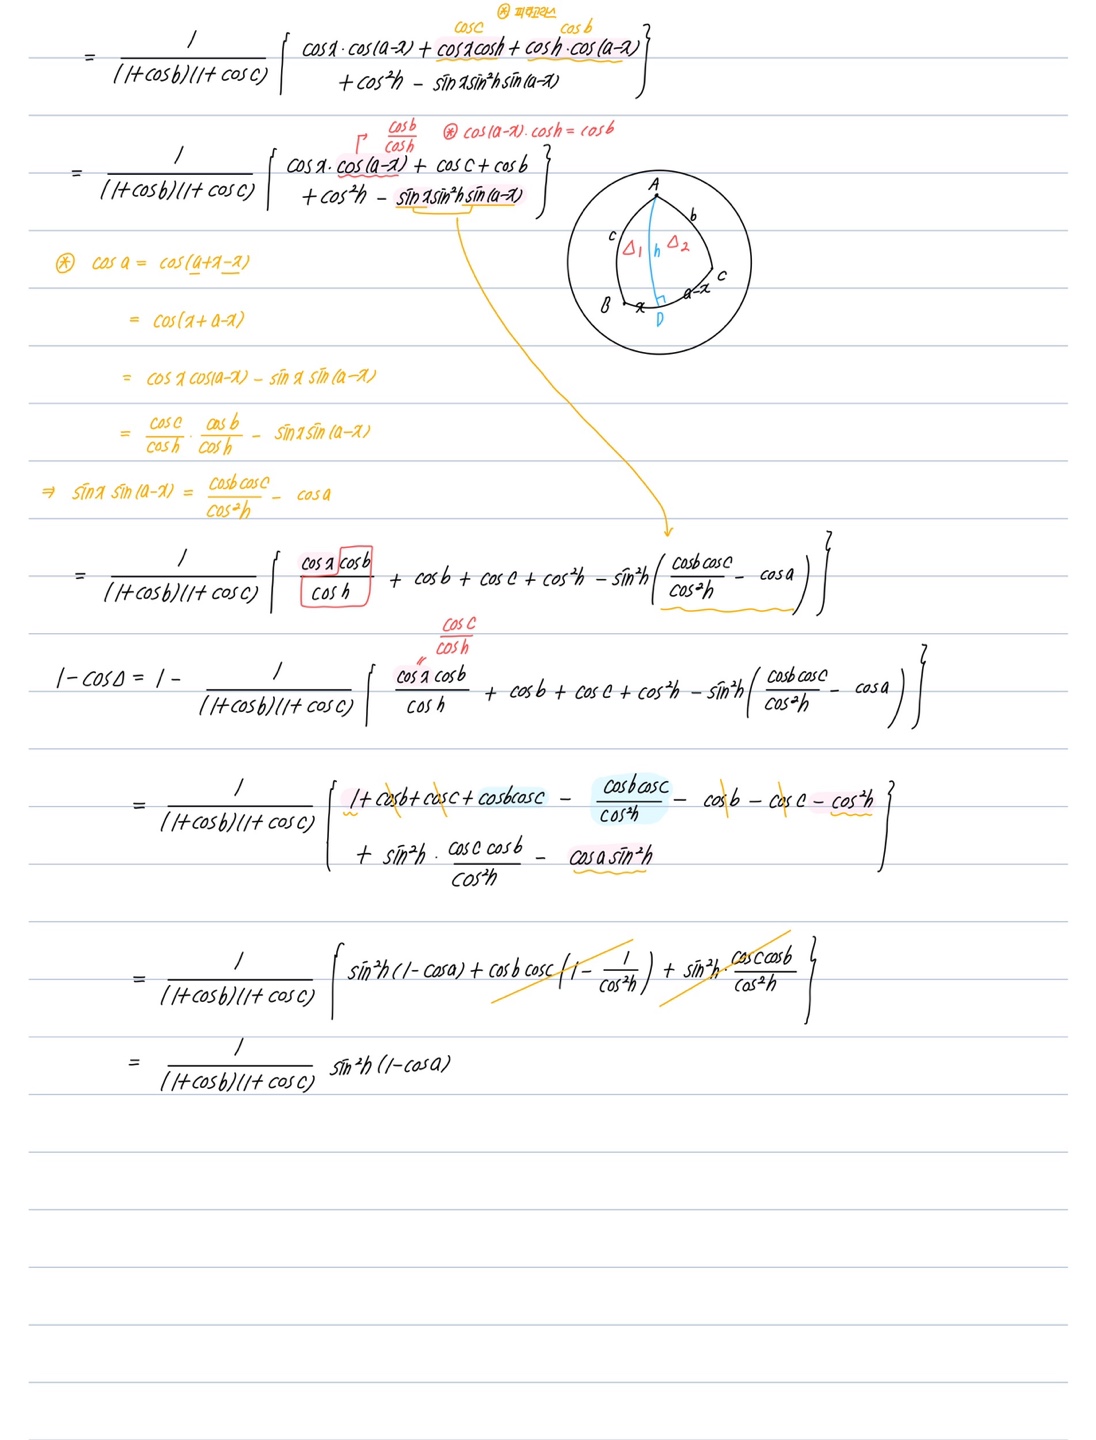 ⊛ 피타고라스
cos c   cos b
= 1/((1+cos b)(1+cos c)) { cos x · cos(a-x) + cos x cos h + cos h · cos(a-x)
+ cos²h - sin x sin²h sin(a-x) }
cos b / cos h   ⊛ cos(a-x) · cos h = cos b
= 1/((1+cos b)(1+cos c)) [ cos x · cos(a-x) + cos c + cos b
+ cos²h - sin x sin²h sin(a-x) }
A
b
c Δ₁ h Δ₂
C
B x D a-x
⊛ cos a = cos(a+x-x)
= cos(x+a-x)
= cos x cos(a-x) - sin x sin(a-x)
= cos c / cos h · cos b / cos h - sin x sin(a-x)
⇒ sin x sin(a-x) = cos b cos c / cos²h - cos a
= 1/((1+cos b)(1+cos c)) [ cos x cos b / cos h + cos b + cos c + cos²h - sin²h ( cos b cos c / cos²h - cos a ) }
cos c / cos h
"
1-cos Δ = 1 - 1/((1+cos b)(1+cos c)) [ cos x cos b / cos h + cos b + cos c + cos²h - sin²h ( cos b cos c / cos²h - cos a ) }
= 1/((1+cos b)(1+cos c)) [ 1+cos b+cos c+cos b cos c - cos b cos c / cos²h - cos b - cos c - cos²h
+ sin²h · cos c cos b / cos²h - cos a sin²h }
= 1/((1+cos b)(1+cos c)) [ sin²h (1-cos a) + cos b cos c (1 - 1/cos²h) + sin²h · cos c cos b / cos²h }
= 1/((1+cos b)(1+cos c)) sin²h (1-cos a)